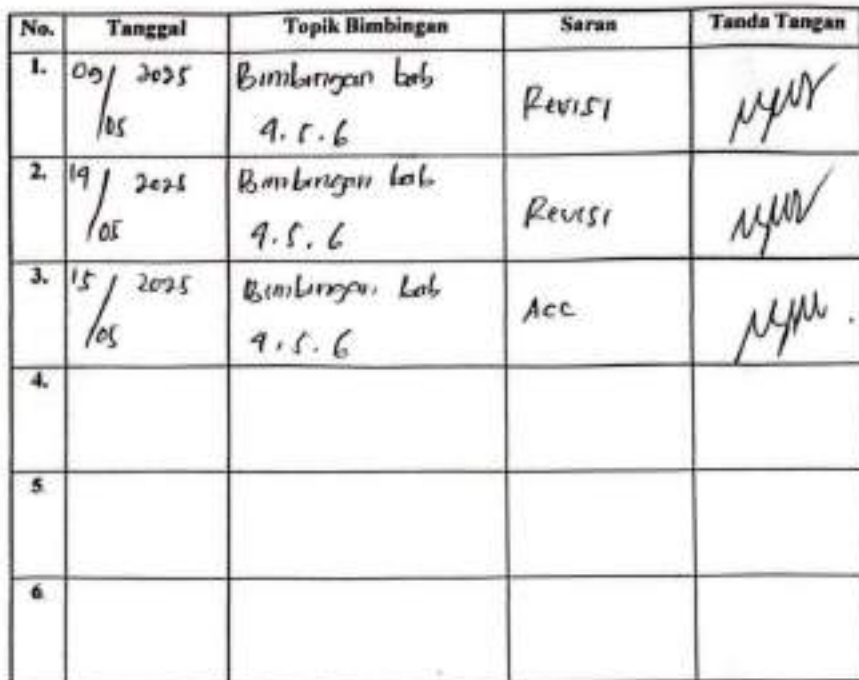 No. Tanggal Topik Bimbingan Saran Tanda Tangan
1. 09/05 2025 Bimbingan bab 4.5.6 Revisi
2. 14/05 2025 Bimbingan bab 4.5.6 Revisi
3. 15/05 2025 Bimbingan bab 4.5.6 Acc
4.
5
6